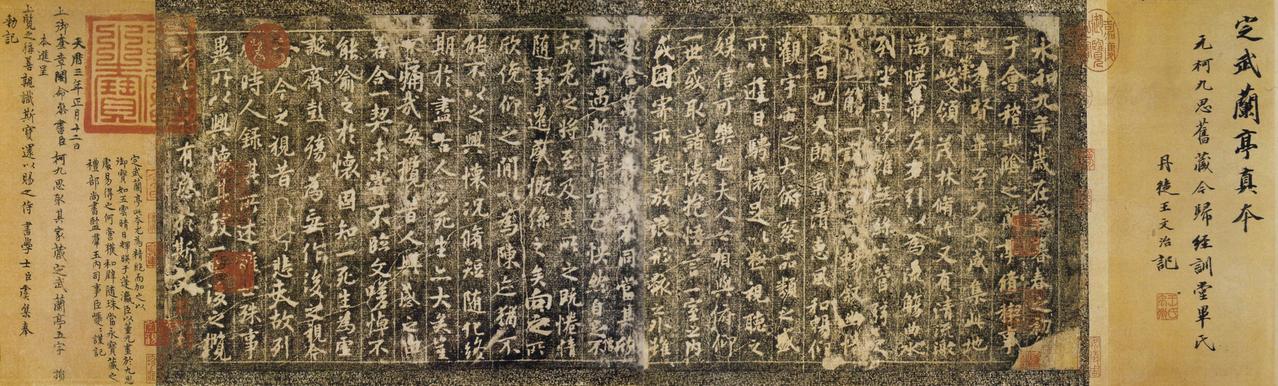 定武蘭亭真本
元柯九思舊藏今歸經訓堂畢氏
丹徒王文治記
永和九年歲在癸丑暮春之初
于會稽山陰之蘭亭脩稧事
也羣賢畢至少長咸集此地
有崇山峻領茂林脩竹又有清流激
湍暎帶左右引以為流觴曲水
列坐其次雖無絲竹管弦之
盛一觴一詠亦足以暢敘幽情
是日也天朗氣清惠風和暢仰
觀宇宙之大俯察品類之盛
所以遊目騁懷足以極視聽之
娛信可樂也夫人之相與俯仰
一世或取諸懷抱悟言一室之內
或因寄所託放浪形骸之外雖
趣舍萬殊靜躁不同當其欣
於所遇暫得於己快然自足不
知老之將至及其所之既惓情
隨事遷感慨係之矣向之所
欣俛仰之間以為陳迹猶不
能不以之興懷況脩短隨化終
期於盡古人云死生亦大矣豈
不痛哉每攬昔人興感之由
若合一契未嘗不臨文嗟悼不
能喻之於懷固知一死生為虛
誕齊彭殤為妄作後之視今
亦由今之視昔悲夫故列
敘時人錄其所述雖世殊事
異所以興懷其致一也後之攬
者亦將有感於斯文
定武蘭亭此本尤為精絕而加之以
御寶如五雲晴日輝映于蓬瀛臣以董元畫於九思
處易得之何啻獲和璧隨珠當永寶藏之
禮部尚書監羣玉內司事臣巎巎謹記
天曆三年正月十二日
上御奎章閣命參書臣柯九思取其家藏定武蘭亭五字損
本進呈
上覽之稱善親識斯寶還以賜之侍書學士臣虞集奉
勅記